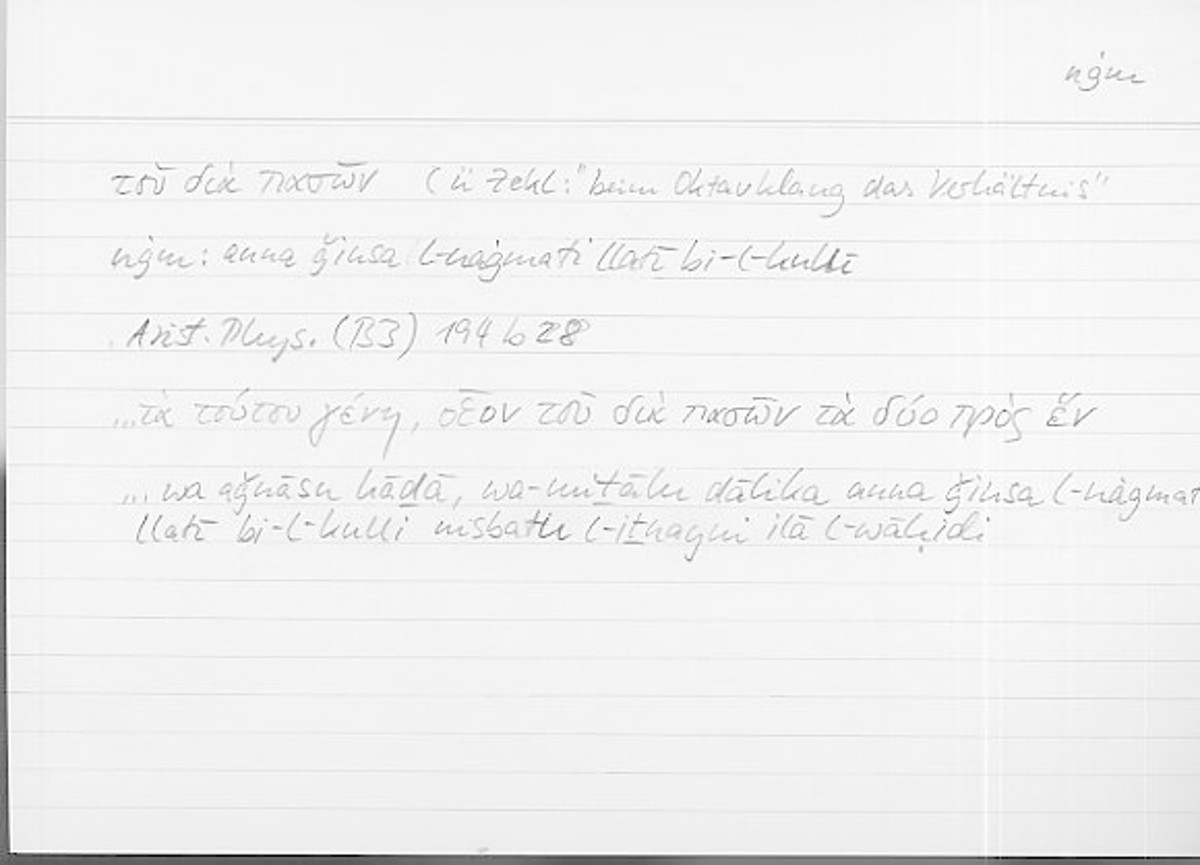 nġm
τοῦ διὰ πασῶν (ü Zekl: "beim Oktavklang das Verhältnis"
nġm: anna ǧinsa l-naġmati llatī bi-l-kulli
Arist. Phys. (B3) 194 b 28
...τὰ τούτου γένη, οἷον τοῦ διὰ πασῶν τὰ δύο πρὸς ἕν
... wa aǧnāsu hāḏā, wa-miṯālu ḏālika anna ǧinsa l-naġmat
llatī bi-l-kulli nisbatu l-iṯnayni ilā l-wāḥidi